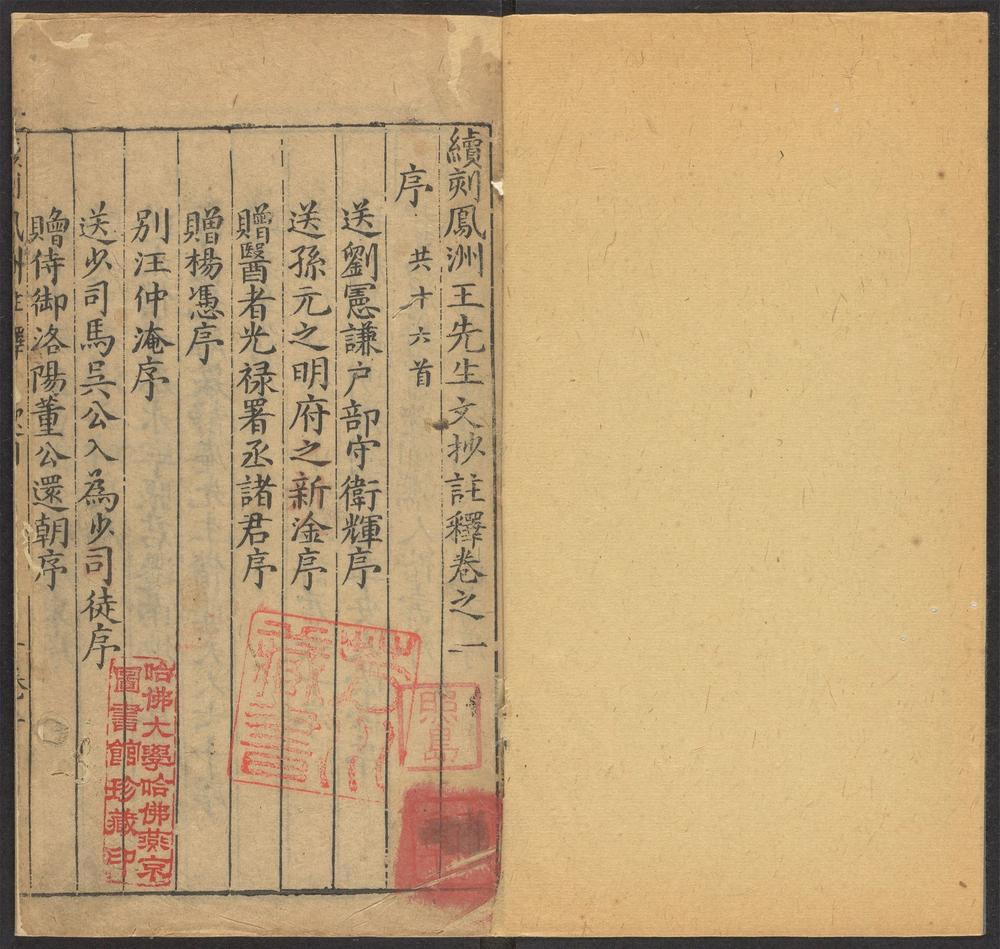 續刻鳳洲王先生文抄註釋卷之一
序 共才六首
送劉憲謙户部守衛輝序
送孫元之明府之新淦序
贈醫者光禄署丞諸君序
贈楊憑序
别汪仲淹序
送少司馬吳公入為少司徒序
贈侍御洛陽董公還朝序
照島
藏書
哈佛大學哈佛燕京
圖書館珍藏印